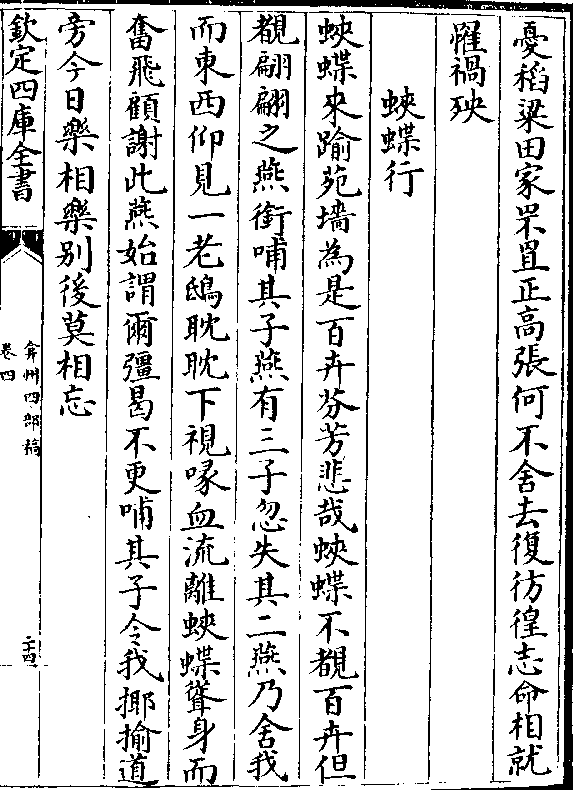 憂稻粱田家罘罝正高張何不舍去復彷徨志命相就
罹禍殃
蛺蝶行
蛺蝶來踰苑墻為是百卉芬芳悲哉蛺蝶不覩百卉但
覩翩翩之燕銜哺其子燕有三子忽失其二燕乃舍我
而東西仰見一老鴟耽耽下視喙血流離蛺蝶聳身而
奮飛顧謝此燕始謂爾彊曷不更哺其子令我揶揄道
旁今日樂相樂別後莫相忘
欽定四庫全書
弇州四部稿
卷四
二十四